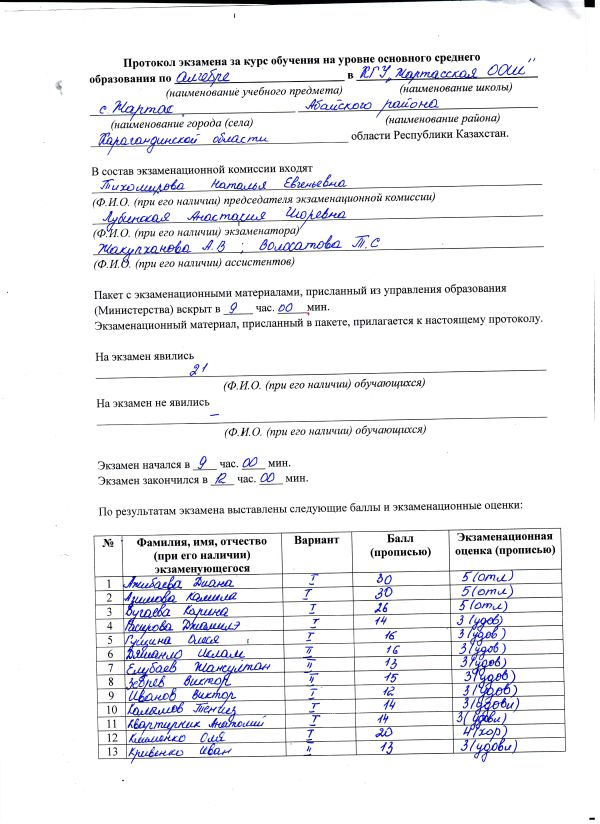 Протокол экзамена за курс обучения на уровне основного среднего
образования по алгебре в КГУ „Жартасская ООШ"
(наименование учебного предмета) (наименование школы)
с. Жартас, Абайского района
(наименование города (села) (наименование района)
Карагандинской области области Республики Казахстан.
В состав экзаменационной комиссии входят
Тихомирова Наталья Евгеньевна
(Ф.И.О. (при его наличии) председателя экзаменационной комиссии)
Лубенская Анастасия Игоревна
(Ф.И.О. (при его наличии) экзаменатора)
Жакулханова А.В ; Волосатова Т.С
(Ф.И.О. (при его наличии) ассистентов)
Пакет с экзаменационными материалами, присланный из управления образования
(Министерства) вскрыт в 9 час. 00 мин.
Экзаменационный материал, присланный в пакете, прилагается к настоящему протоколу.
На экзамен явились
21
(Ф.И.О. (при его наличии) обучающихся)
На экзамен не явились
–
(Ф.И.О. (при его наличии) обучающихся)
Экзамен начался в 9 час. 00 мин.
Экзамен закончился в 12 час. 00 мин.
По результатам экзамена выставлены следующие баллы и экзаменационные оценки:
№ Фамилия, имя, отчество Вариант Балл Экзаменационная
(при его наличии) (прописью) оценка (прописью)
экзаменующегося
1 Ажибаева Диана I 30 5 (отл)
2 Азимова Камила I 30 5 (отл)
3 Бугаева Карина I 26 5 (отл)
4 Джамиля I 14 3 (удов)
5 Гущина Олеся I 16 3 (удов)
6 Ислам II 16 3 (удов)
7 Елубаев Жансултан II 13 3 (удов)
8 Виктор II 15 3 (удов)
9 Иванов Виктор I 12 3 (удов)
10 Каламов Тенгиз I 14 3 (удовл)
11 Квартирник Анатолий I 14 3 (удовл)
12 Клименко Оля I 20 4 (хор)
13 Кривенко Иван II 13 3 (удовл)